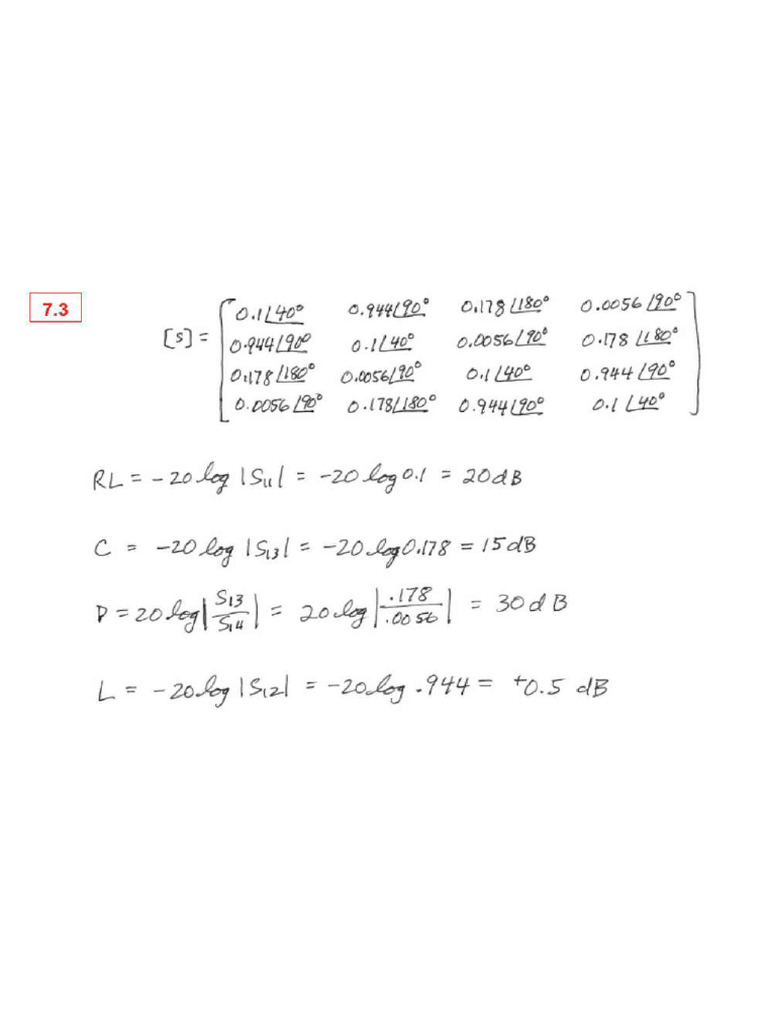 7.3
[S] = [ 0.1∠40° 0.944∠90° 0.178∠180° 0.0056∠90°
0.944∠90° 0.1∠40° 0.0056∠90° 0.178∠180°
0.178∠180° 0.0056∠90° 0.1∠40° 0.944∠90°
0.0056∠90° 0.178∠180° 0.944∠90° 0.1∠40° ]
RL = -20 log |S11| = -20 log 0.1 = 20 dB
C = -20 log |S13| = -20 log 0.178 = 15 dB
D = 20 log |S13/S14| = 20 log |.178/.0056| = 30 dB
L = -20 log |S12| = -20 log .944 = +0.5 dB